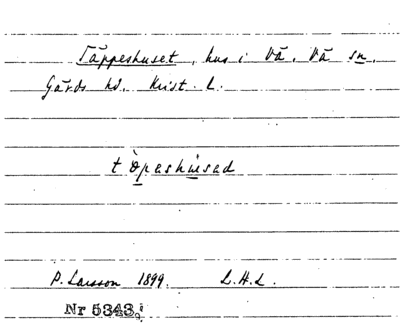 Täppeshuset, hus i Vä, Vä sn.
Gärds hd. Krist. L.
t òpeshùsad
P. Larsson 1899. L.H.L.
Nr 5343.